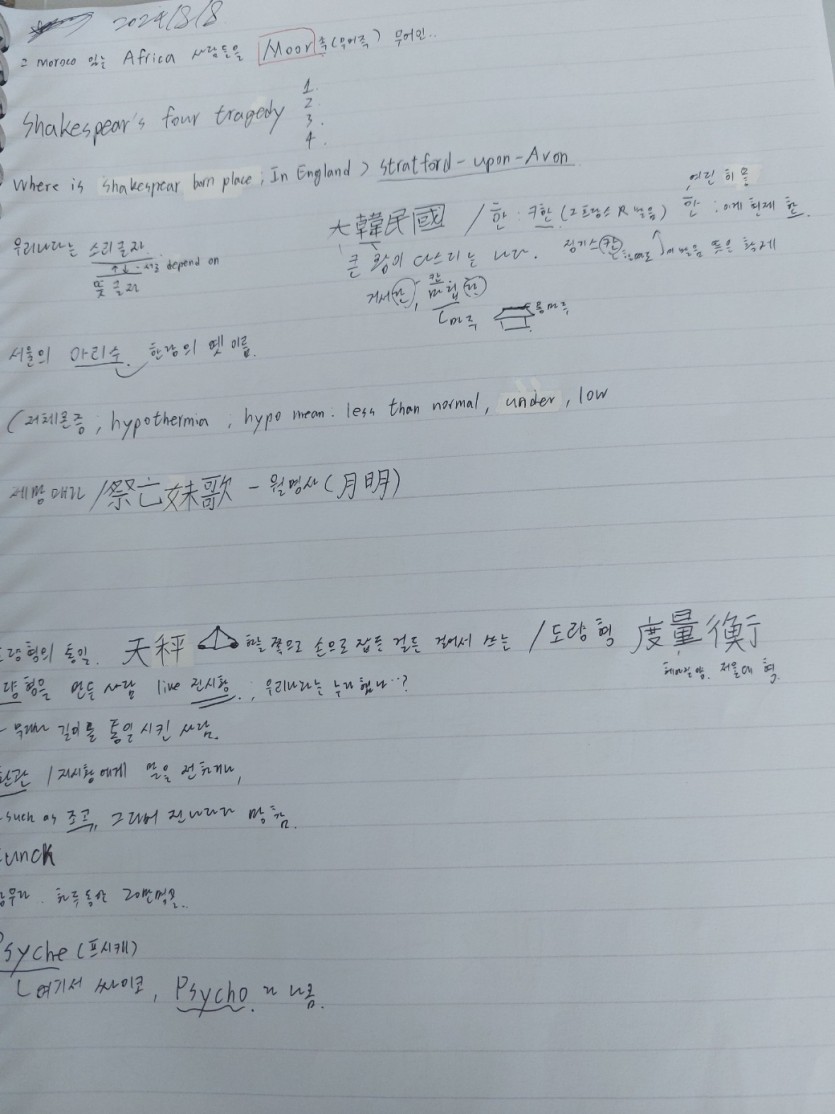 2024/8/8
Moroco 있는 Africa 사람들을 Moor족(무어족) 무어인..
Shakespear's four tragedy 1. 2. 3. 4.
Where is shakespear born place ; In England > stratford-upon-Avon
우리나라는 소리글자
depend on
뜻글자
大韓民國 / 한 : 크한 (2 R 발음) 한 : 이게 현재 한.
큰 왕이 다스리는 나라. 징기스칸
거서간, 마립간
서울의 아리수. 한강의 옛 이름.
(저체온증, hypothermia, hypo mean. less than normal, under, low
제망매가 / 祭亡妹歌 - 월명사 (月明)
도량형의 통일. 天秤 한 쪽으로 손으로 잡든 걸든 걸어서 쓰는 / 도량형 度量衡
헤아릴 양. 저울대 형.
량형을 만든 사람 live 진시황. ; 우리나라는 누가 했나..?
길이를 통일 시킨 사람.
환관 / 진시황에게 말을 전하거나,
such as 조고, 그래서 진나라가 망함.
unck
하루동안 20만명을..
Psyche (프시케)
ㄴ 여기서 싸이코, Psycho 가 나옴.